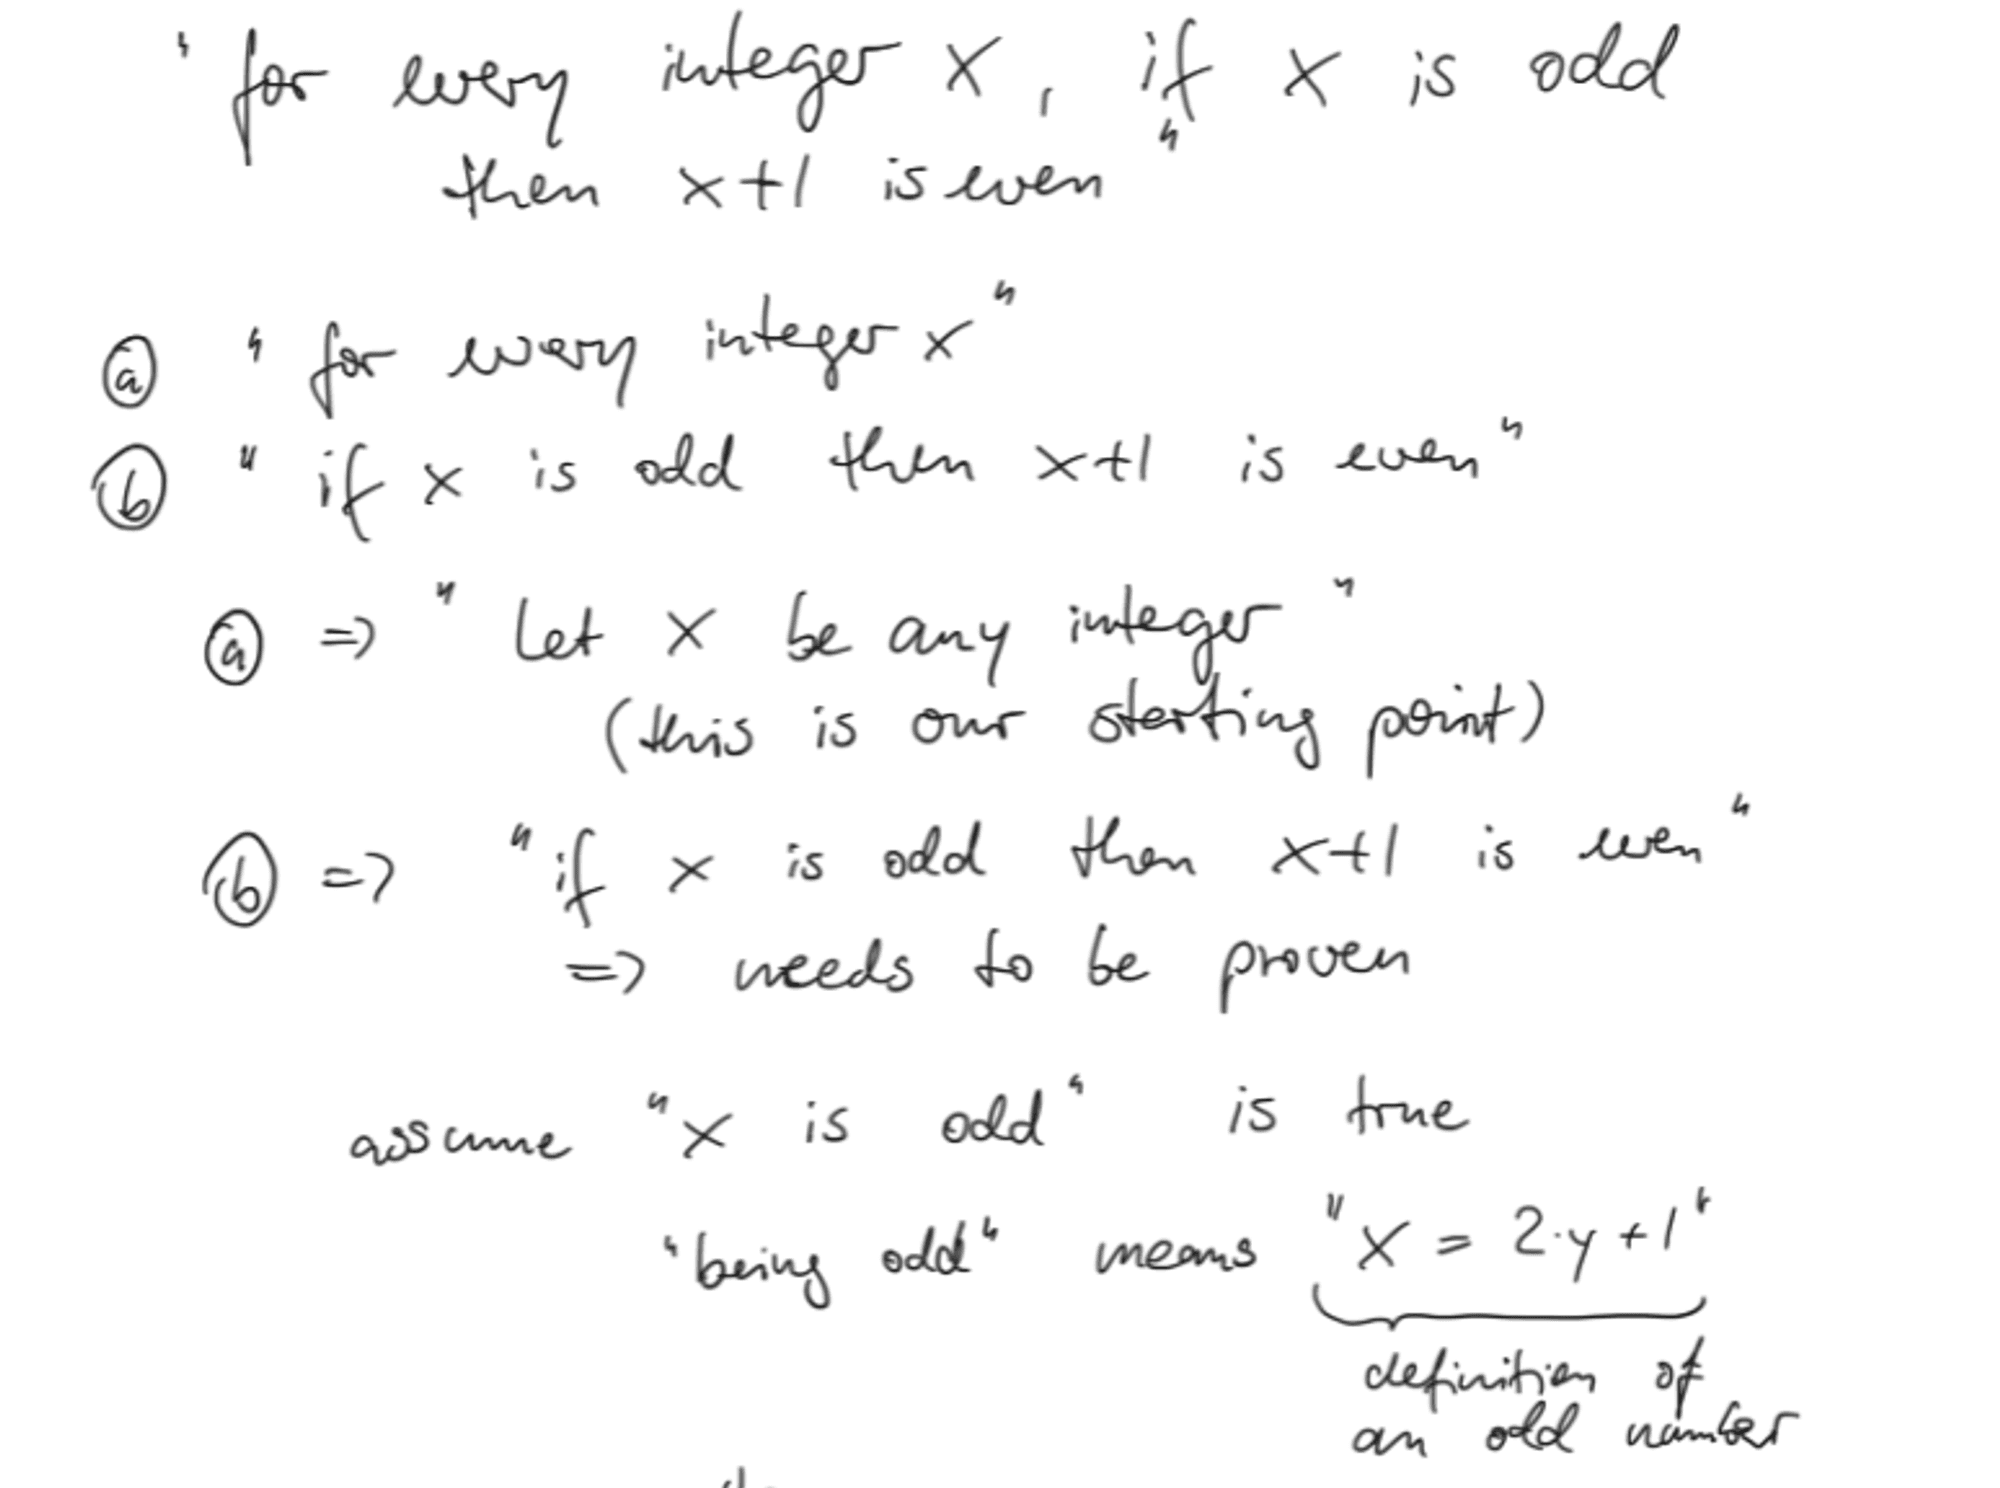 "for every integer x, if x is odd
then x+1 is even"
ⓐ "for every integer x"
ⓑ "if x is odd then x+1 is even"
ⓐ => "Let x be any integer"
(this is our starting point)
ⓑ => "if x is odd then x+1 is even"
=> needs to be proven
assume "x is odd" is true
"being odd" means "x = 2·y+1"
definition of
an odd number